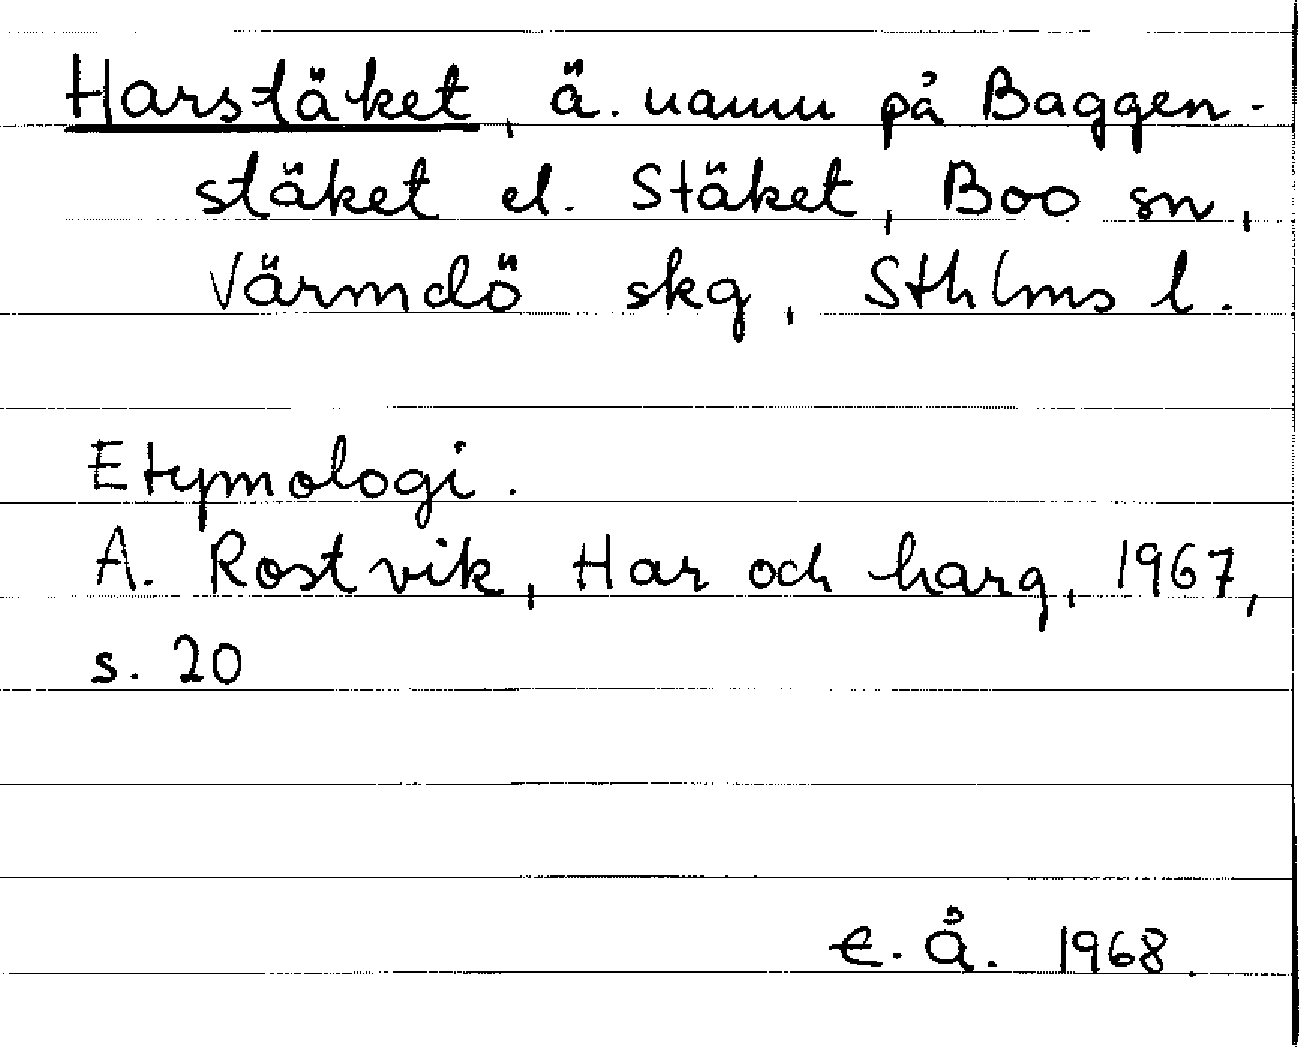 Harstäket, ä. namn på Baggen-
stäket el. Stäket, Boo sn,
Värmdö skg, Sthlms l.
Etymologi.
A. Rostvik, Har och harg, 1967,
s. 20
E. Å. 1968.